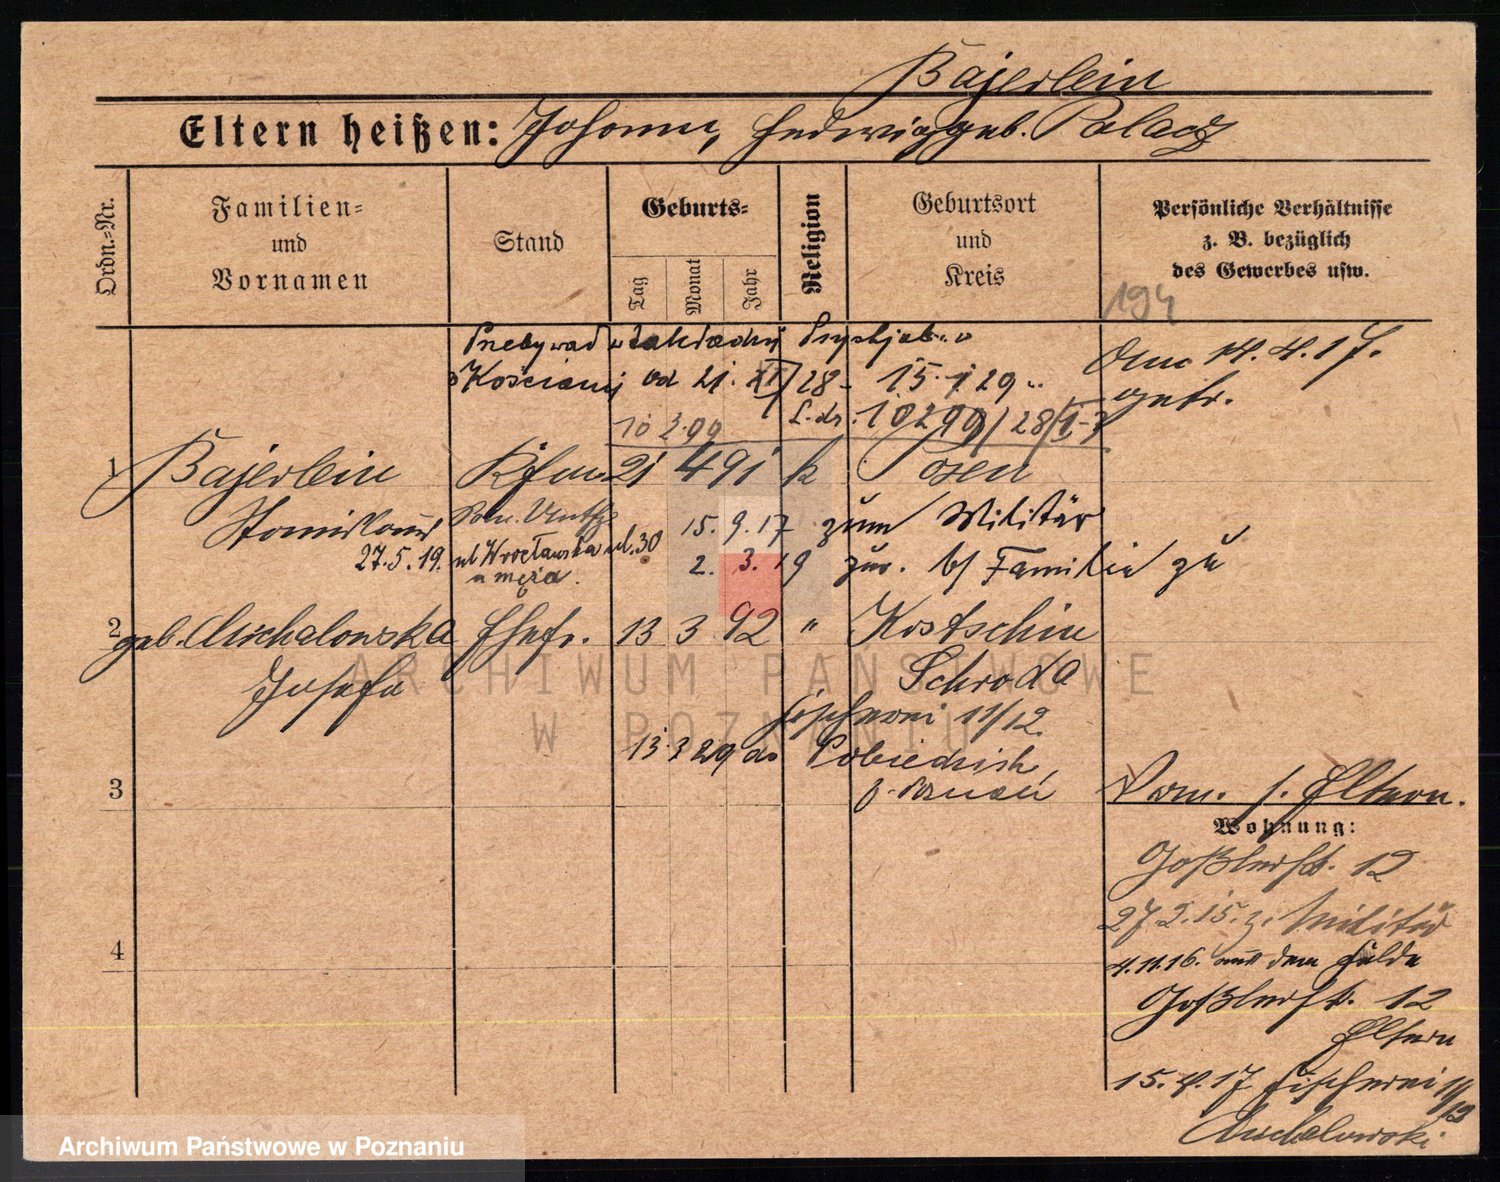 Bajerlein
Eltern heißen: Johann, Hedwig geb. Polacz
Ordn.=Nr.
Familien=
und
Vornamen
Stand
Geburts=
Tag
Monat
Jahr
Religion
Geburtsort
und
Kreis
Persönliche Verhältnisse
z. B. bezüglich
des Gewerbes usw.
194
Przebywał w zakładzie
w Kościanie od 21. XI 28 - 15.1.29
10 2 99 L.dz. 10299/28/
Am 14.4.17.
getr.
1 Bajerlein Kfm. 21 4 91 k Posen
Stanislaus
15. 9. 17 zum Militär
27.5.19. ul Wrocławska 30
u męża.
2. 3. 19 zur. b/ Familie zu
2 geb. Michalowska Ehefr. 13 3 92 " Kostschin
Josefa Schroda
Fischerei 11/12.
13 3 29 do Pobiedzisk
3
4
Wohnung:
Eltern.
Goßlerstr. 12
27.2.15. z. Militär
4.11.16. aus dem Felde
Goßlerstr. 12
Eltern
15.4.17 Fischerei 11/12
Michalowski
ARCHIWUM PAŃSTWOWE
W POZNANIU
Archiwum Państwowe w Poznaniu